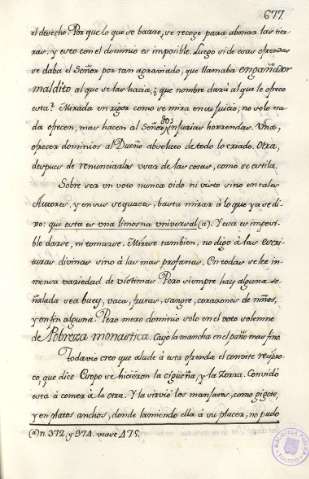 677
el desecho. Por que lo que se barre, se recoge para abonar las tier-
ras, y esto con el dominio es imposible. Luego si de esas ofrendas
se daba el Señor por tan agraviado, que llamaba engañador
maldito al que se las hacia; que nombre dará al que le ofrece
esta? Mirada en rigor como se mira en su juicio, no solo na-
da ofrecen, mas hacen al Señor dos injurias horrendas. Una,
ofrecer dominios al Dueño absoluto de todo lo criado. Otra,
despues de renunciarlas usar de las cosas, como se estila.
Sobre sea un voto nunca oido ni visto sino en tales
Autores, y en sus sequaces, basta mirar à lo que ya se di-
xo: que esta es una limosna universal (a). Y esa es imposi-
ble darse, ni tomarse. Mirese tambien, no digo à las escri-
turas divinas sino à las mas profanas. En todas se lee in-
mensa variedad de victimas. Pero siempre hay alguna se-
ñalada sea buey, vaca, furas, sangre, corazones de niños,
y en fin alguna. Pero mero dominio solo en el voto solemne
de Pobreza monastica. Cayó la mancha en el paño mas fino
Todavia creo que alude à esta ofrenda el convite respec-
to que dice Esopo se hicieron la Cigueña, y la Zorra. Convidó
esta à comer à la otra. Y la sirvió los manjares, como gigote,
y en platos anchos, donde lamiendo ella à su placer, no pudo
(a) n. 372, y 974. inove 475.